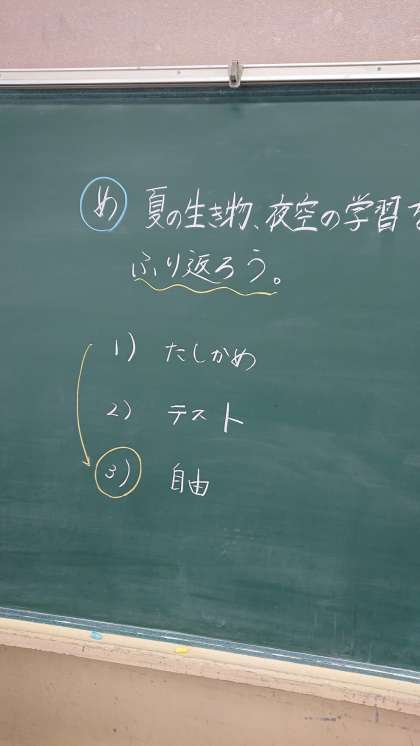 め 夏の生き物、夜空の学習を
ふり返ろう。
1) たしかめ
2) テスト
3) 自由